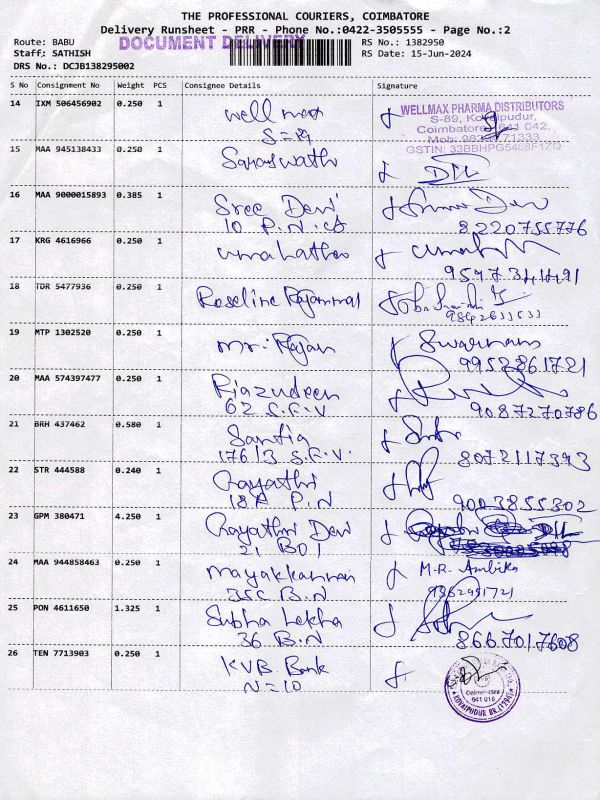 THE PROFESSIONAL COURIERS, COIMBATORE
Delivery Runsheet - PRR - Phone No.:0422-3505555 - Page No.:2
Route: BABU DOCUMENT DELIVERY RS No.: 1382950
Staff: SATHISH RS Date: 15-Jun-2024
DRS No.: DCJB138295002
S No Consignment No Weight PCS Consignee Details Signature
14 IXM 506456902 0.250 1 well max
S=89
WELLMAX PHARMA DISTRIBUTORS
S-89, Kovaipudur,
Coimbatore - 641 042.
GSTIN: 33BBHPG5468F1ZQ
15 MAA 945138433 0.250 1 Saraswathi
16 MAA 9000015893 0.385 1 Sree Devi
10 P.N. 8220755776
17 KRG 4616966 0.250 1
18 TDR 5477936 0.250 1 Roseline Rajammal
19 MTP 1302520 0.250 1 mr. Rajan Swarnam
9952861721
20 MAA 574397477 0.250 1 Riazudeen
62 S.F.V 9087270786
21 BRH 437462 0.580 1 Santia
176/3 S.F.V. 8072117393
22 STR 444588 0.240 1 Gayathri
18A P.N 9003855302
23 GPM 380471 4.250 1 Gayathri Devi
21 BDI
24 MAA 944858463 0.250 1 mayakkannan M.R. Ambika
35C B.N
25 PON 4611650 1.325 1 Subha Lekha
36 B.N 8667017608
26 TEN 7713903 0.250 1 KVB Bank
N=10